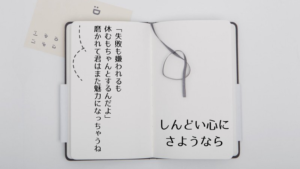 「失敗も嫌われるも
休むもちゃんとするんだよ」
磨かれて君はまた魅力になっちゃうね
しんどい心に
さようなら